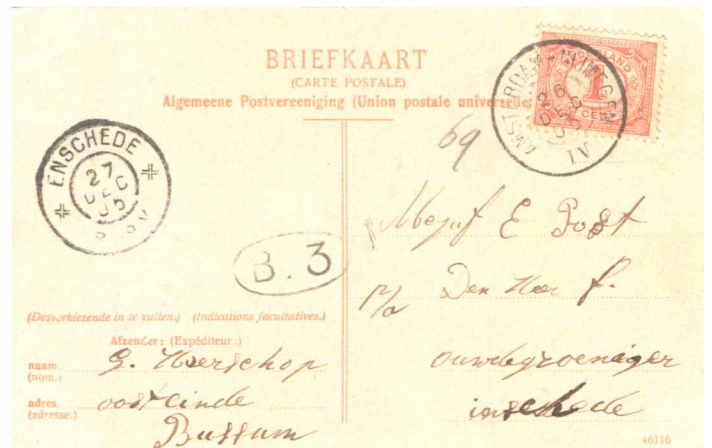 BRIEFKAART
(CARTE POSTALE)
Algemeene Postvereeniging (Union postale universelle
NEDERLAND
1
CENT
AMSTERDAM - NIJMEGEN
26
DEC
05
IV
69
ENSCHEDE
27
DEC
05
B. 3
Mbejuf E Post
Den Heer f.
enschede
(Desverkiezende in te vullen.) (Indications facultatives.)
Afzender: (Expéditeur:)
naam
(nom.)
G.
adres.
(adresse.)
oosteinde
Bussum
46116